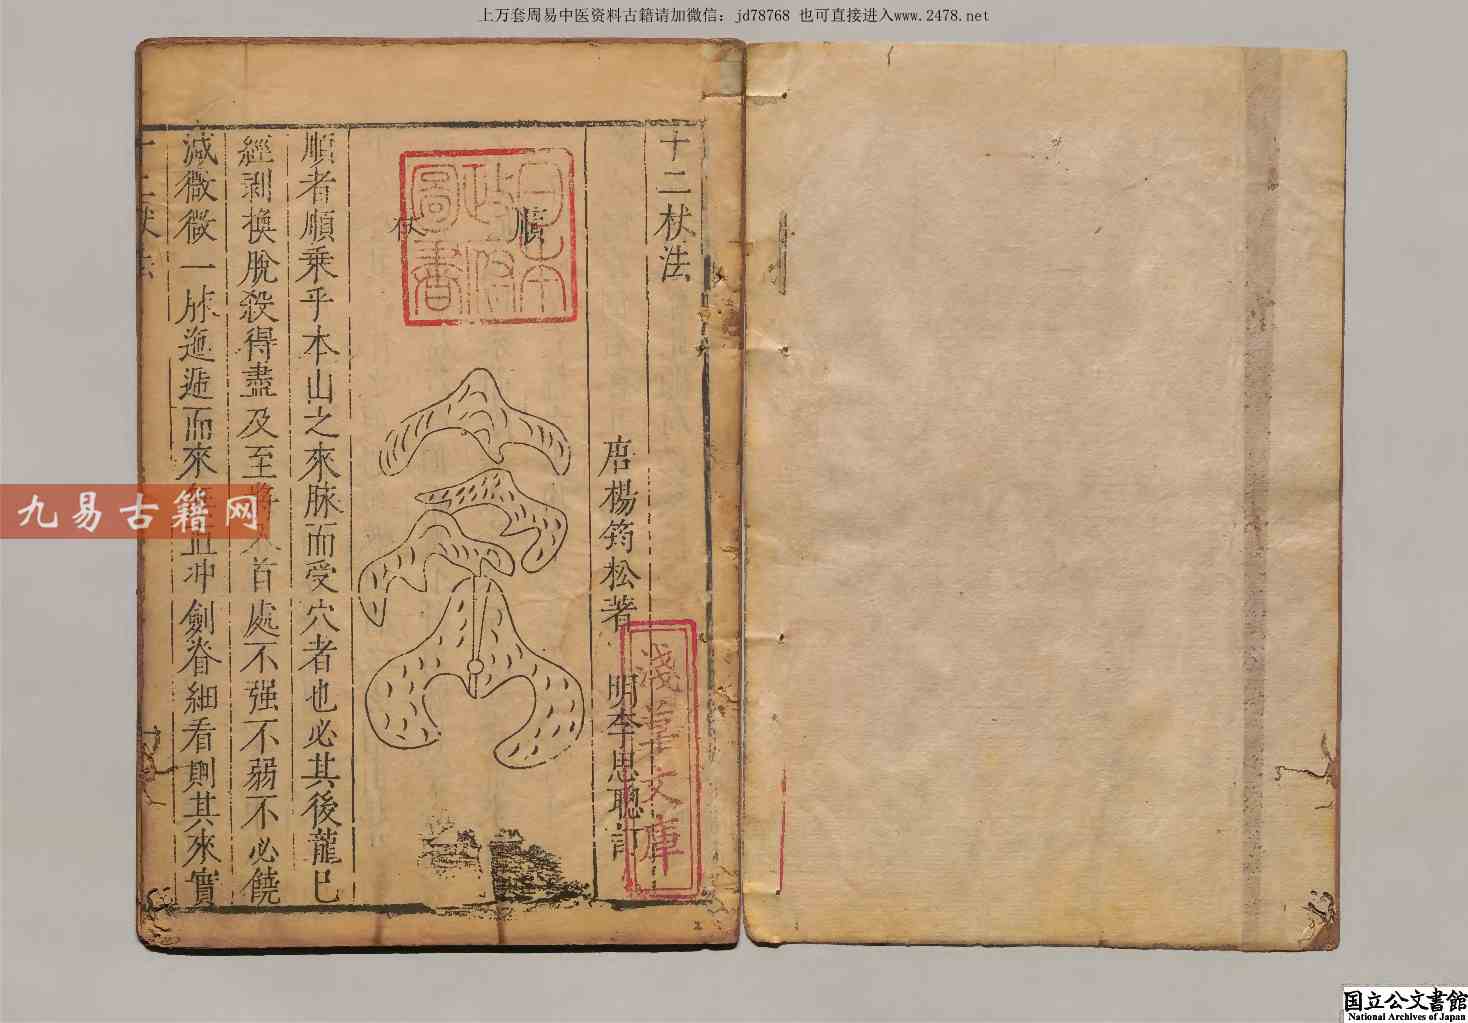 上万套周易中医资料古籍请加微信: jd78768 也可直接进入www.2478.net
十二杖法
唐楊筠松著 明李思聰訂
順 杖
日本政府圖書
淺草文庫
順者順乘乎本山之來脉而受穴者也必其後龍已
經剥換脫殺得盡及至將入首處不强不弱不必饒
減微微一脉迤逦而來無直冲劍脊細看則其來實
十二杖法
九易古籍网
国立公文書館
National Archives of Japan